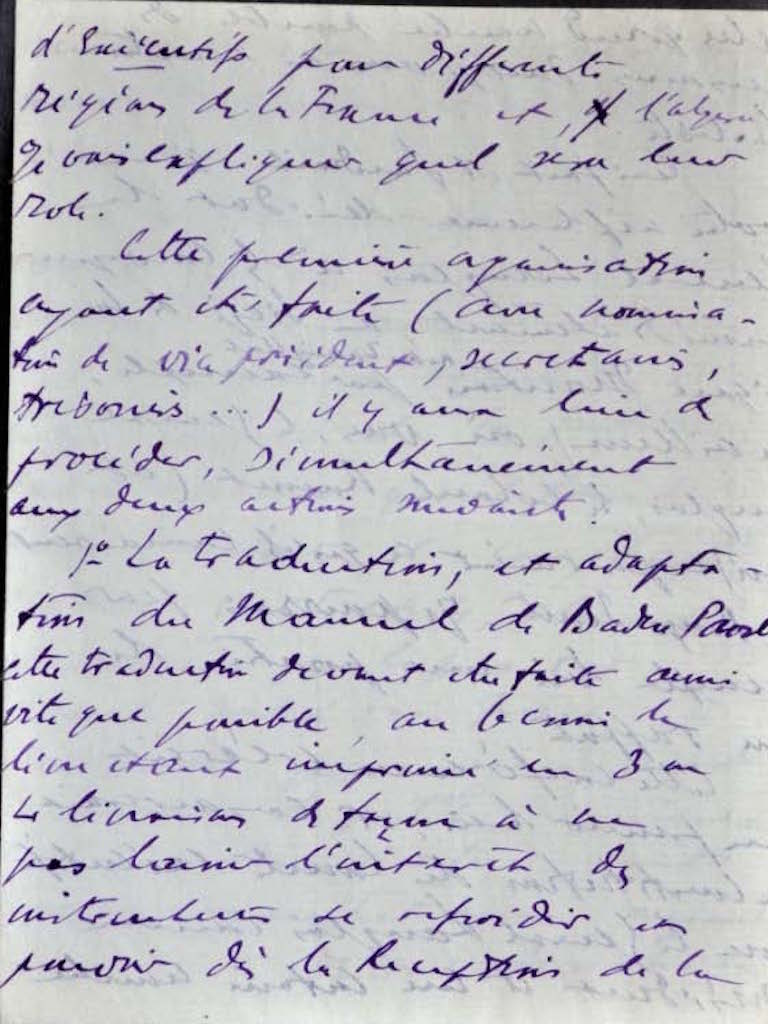 d'Exécutifs pour différentes
régions de la France et, l'algérie
Je vais expliquer quel sera leur
role.
Cette première organisation
ayant été faite (avec nomina-
tion de vice présidents, secretaires,
trésoriers...) il y aura lieu de
procéder, simultanément
aux deux actions suivantes.
1º La traduction, et adapta-
tion du Manuel de Baden Powel
cette traduction devant être faite aussi
vite que possible, au besoin le
livre étant imprimé en 3 ou
4 livraisons de façon à ne
pas laisser l'intérêt des
se refroidir et
pouvoir dès la Reception de la